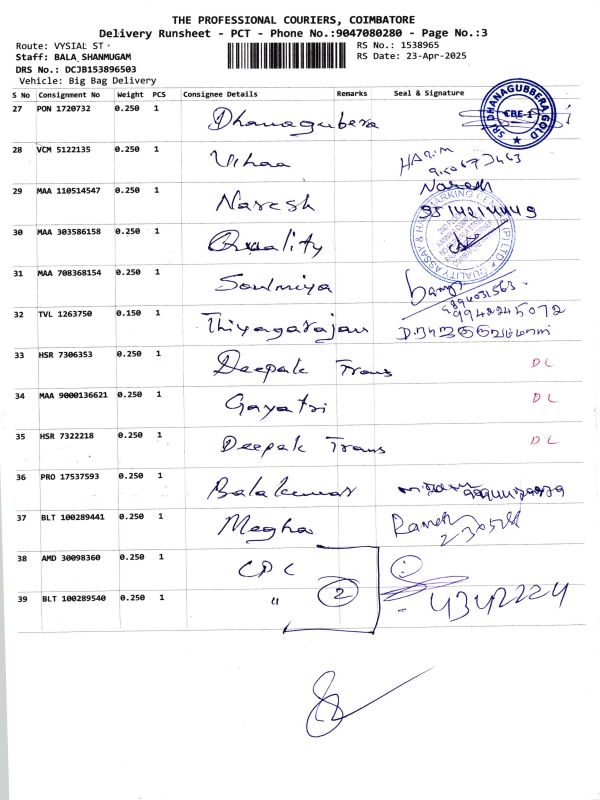 THE PROFESSIONAL COURIERS, COIMBATORE
Delivery Runsheet - PCT - Phone No.:9047080280 - Page No.:3
Route: VYSIAL ST
Staff: BALA SHANMUGAM
DRS No.: DCJB153896503
Vehicle: Big Bag Delivery
RS No.: 1538965
RS Date: 23-Apr-2025
S No Consignment No Weight PCS Consignee Details Remarks Seal & Signature
27 PON 1720732 0.250 1 Dhanagubera SRI DHANAGUBBERA GOLD CBE-1
28 VCM 5122135 0.250 1 Vihaa
29 MAA 110514547 0.250 1 Naresh Naresh
30 MAA 303586158 0.250 1 Quality
31 MAA 708368154 0.250 1 Soulmiya
32 TVL 1263750 0.150 1 Thiyagarajan 9942245072
33 HSR 7306353 0.250 1 Deepak Trans DL
34 MAA 9000136621 0.250 1 Gayatri DL
35 HSR 7322218 0.250 1 Deepak Trans DL
36 PRO 17537593 0.250 1 Balakumar
37 BLT 100289441 0.250 1 Megha Ramesh
38 AMD 30098360 0.250 1 CPC
39 BLT 100289540 0.250 1 " 2 4342224